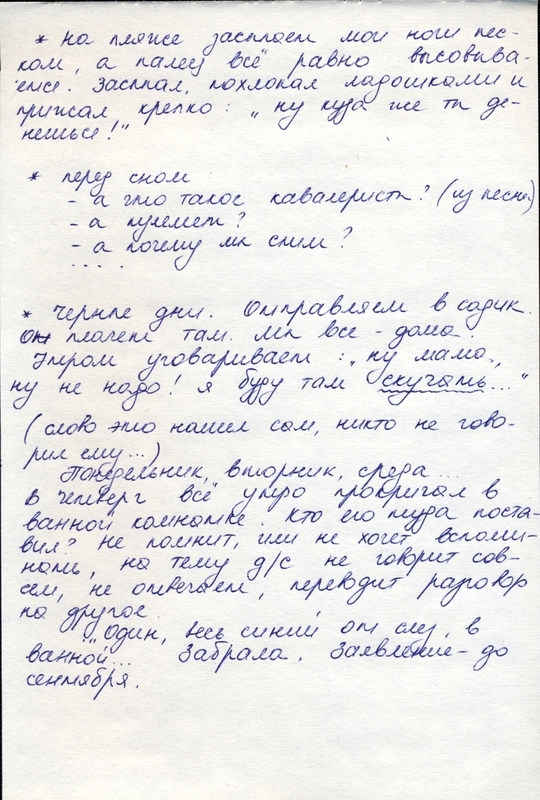 * на пляже засыпает мои ноги пес-
ком, а палец всё равно высовыва-
ется. Засыпал, похлопал ладошками и
прижал крепко: „ну куда же ты де-
нешься!"
* перед сном
- а что такое кавалерист? (из песни)
- а пулемет?
- а почему мы спим?
. . . .
* Черные дни. Отправляем в садик.
Он плачет там. Мы все - дома.
Утром уговаривает: „ну мама,
ну не надо! я буду там скучать..."
(слово это нашел сам, никто не гово-
рил ему...)
Понедельник, вторник, среда...
В четверг всё утро прокричал в
ванной комнате. Кто его туда поста-
вил? Не помнит, или не хочет вспоми-
нать, на тему д/с не говорит сов-
сем, не отвечает, переводит разговор
на другое.
...Один, весь синий от слез, в
ванной... Забрала. Заявление - до
сентября.